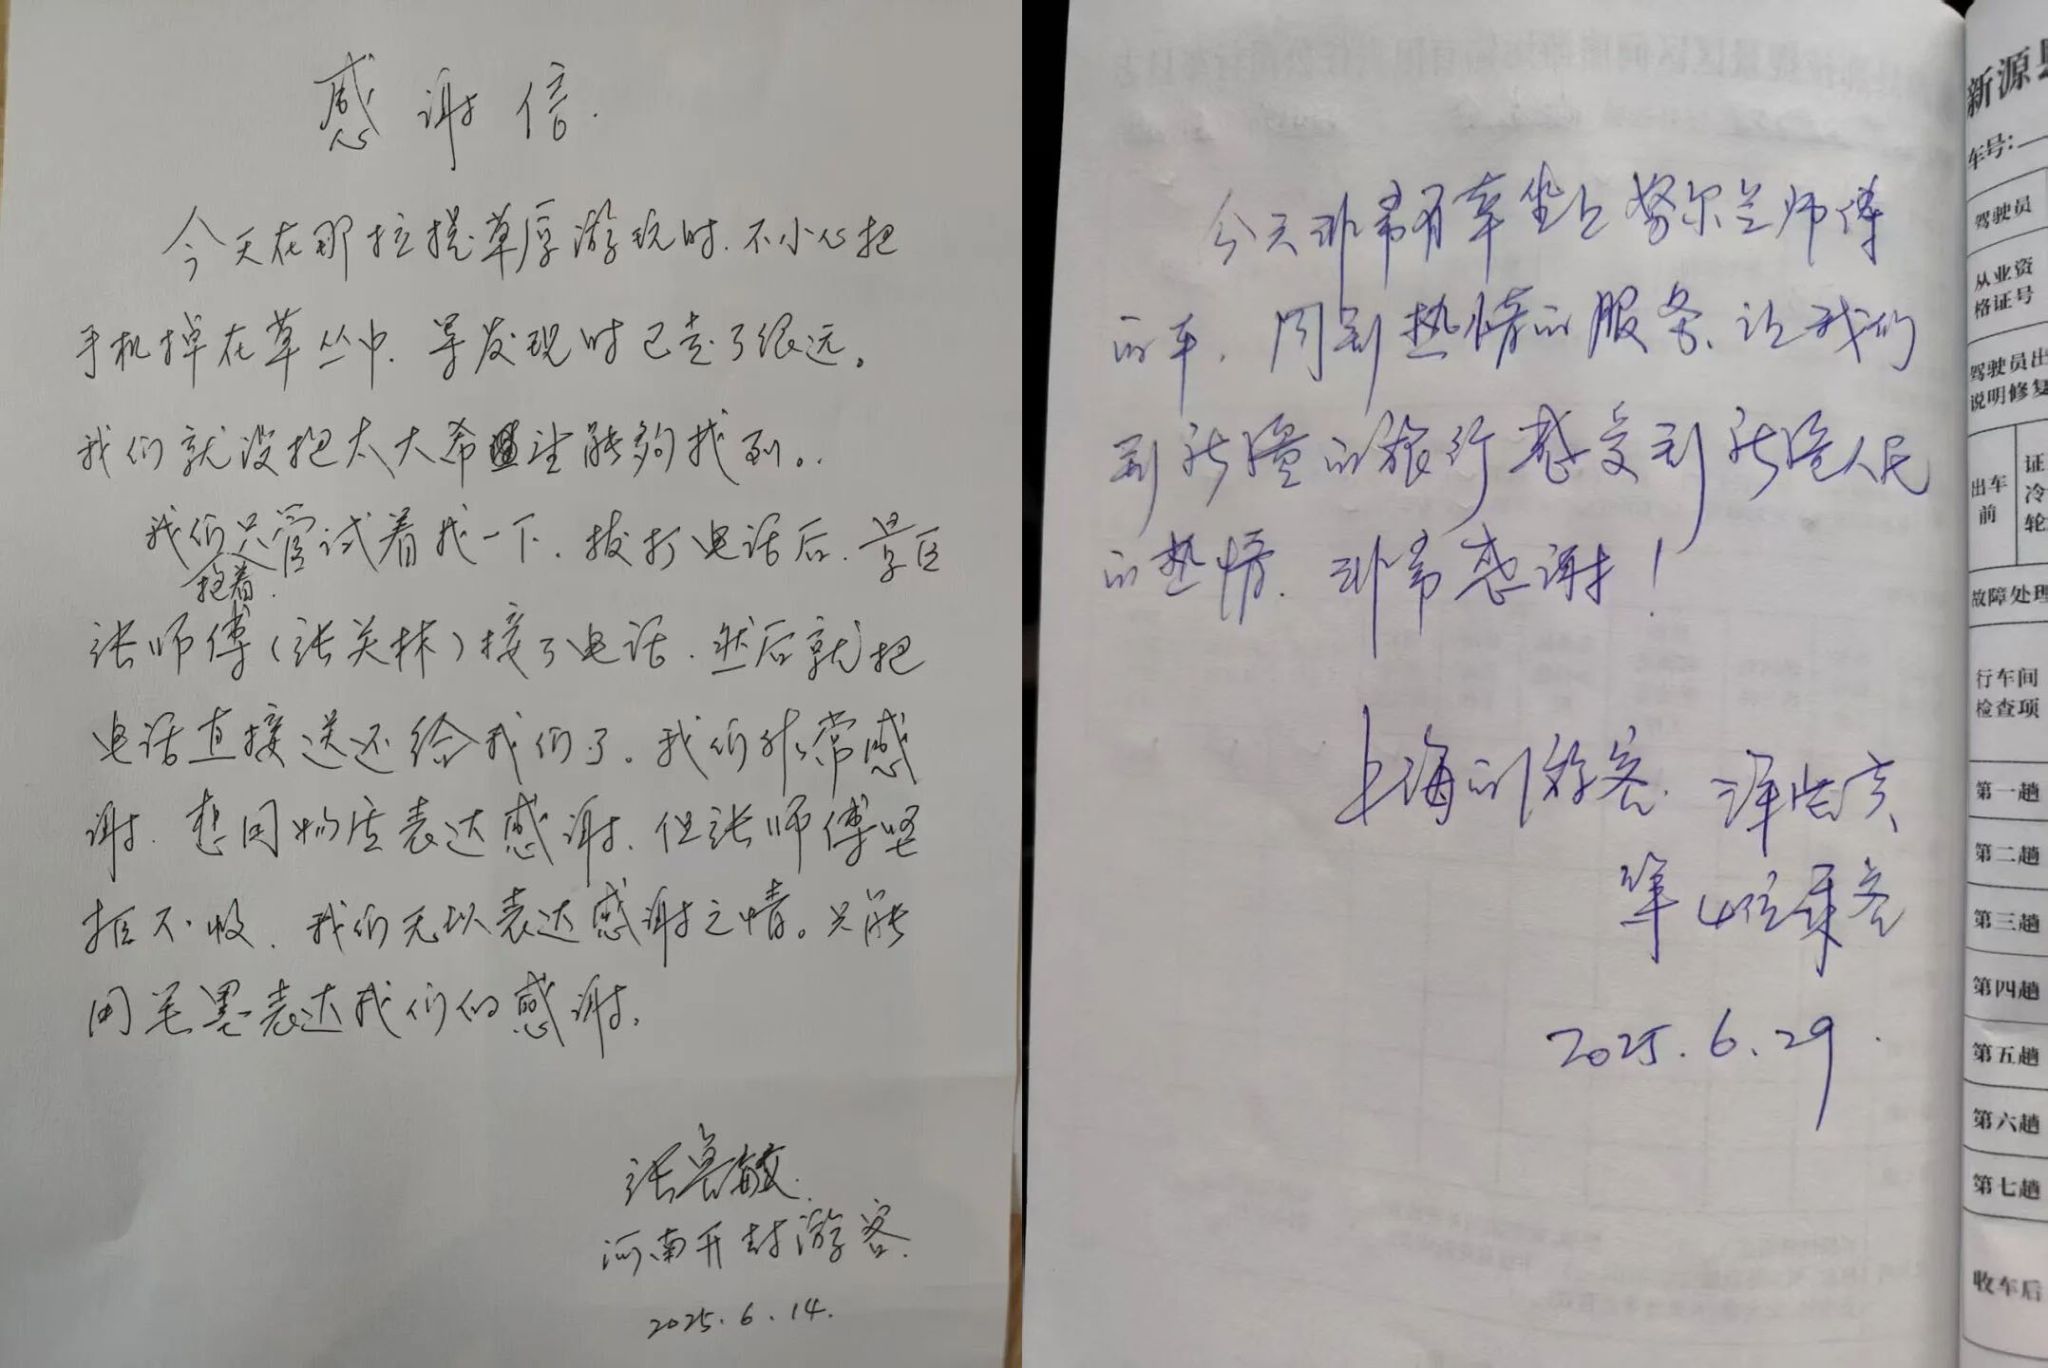 感谢信.
今天在那拉提草原游玩时.不小心把
手机掉在草丛中.等发现时已走了很远。
我们就没把太大希望能够找到。.
我们只管试着找一下.拔打电话后.景区
抱着.
张师傅(张关林)接了电话.然后就把
电话直接送还给我们了。我们非常感
谢.想用物质表达感谢.但张师傅坚
拒不收.我们无以表达感谢之情。只能
用笔墨表达我们的感谢.
张鲁敏.
河南开封游客.
2025.6.14.
今天非常有幸坐上努尔兰师傅
的车.周到热情的服务、让我们
到新疆的旅行感受到新疆人民
的热情.非常感谢!
上海的游客.
等4位乘客
2025.6.29.
新源县
车号:
驾驶员
从业资
格证号
驾驶员出
说明修复
出车
前
证
冷
轮
故障处理
行车间
检查项
第一趟
第二趟
第三趟
第四趟
第五趟
第六趟
第七趟
收车后